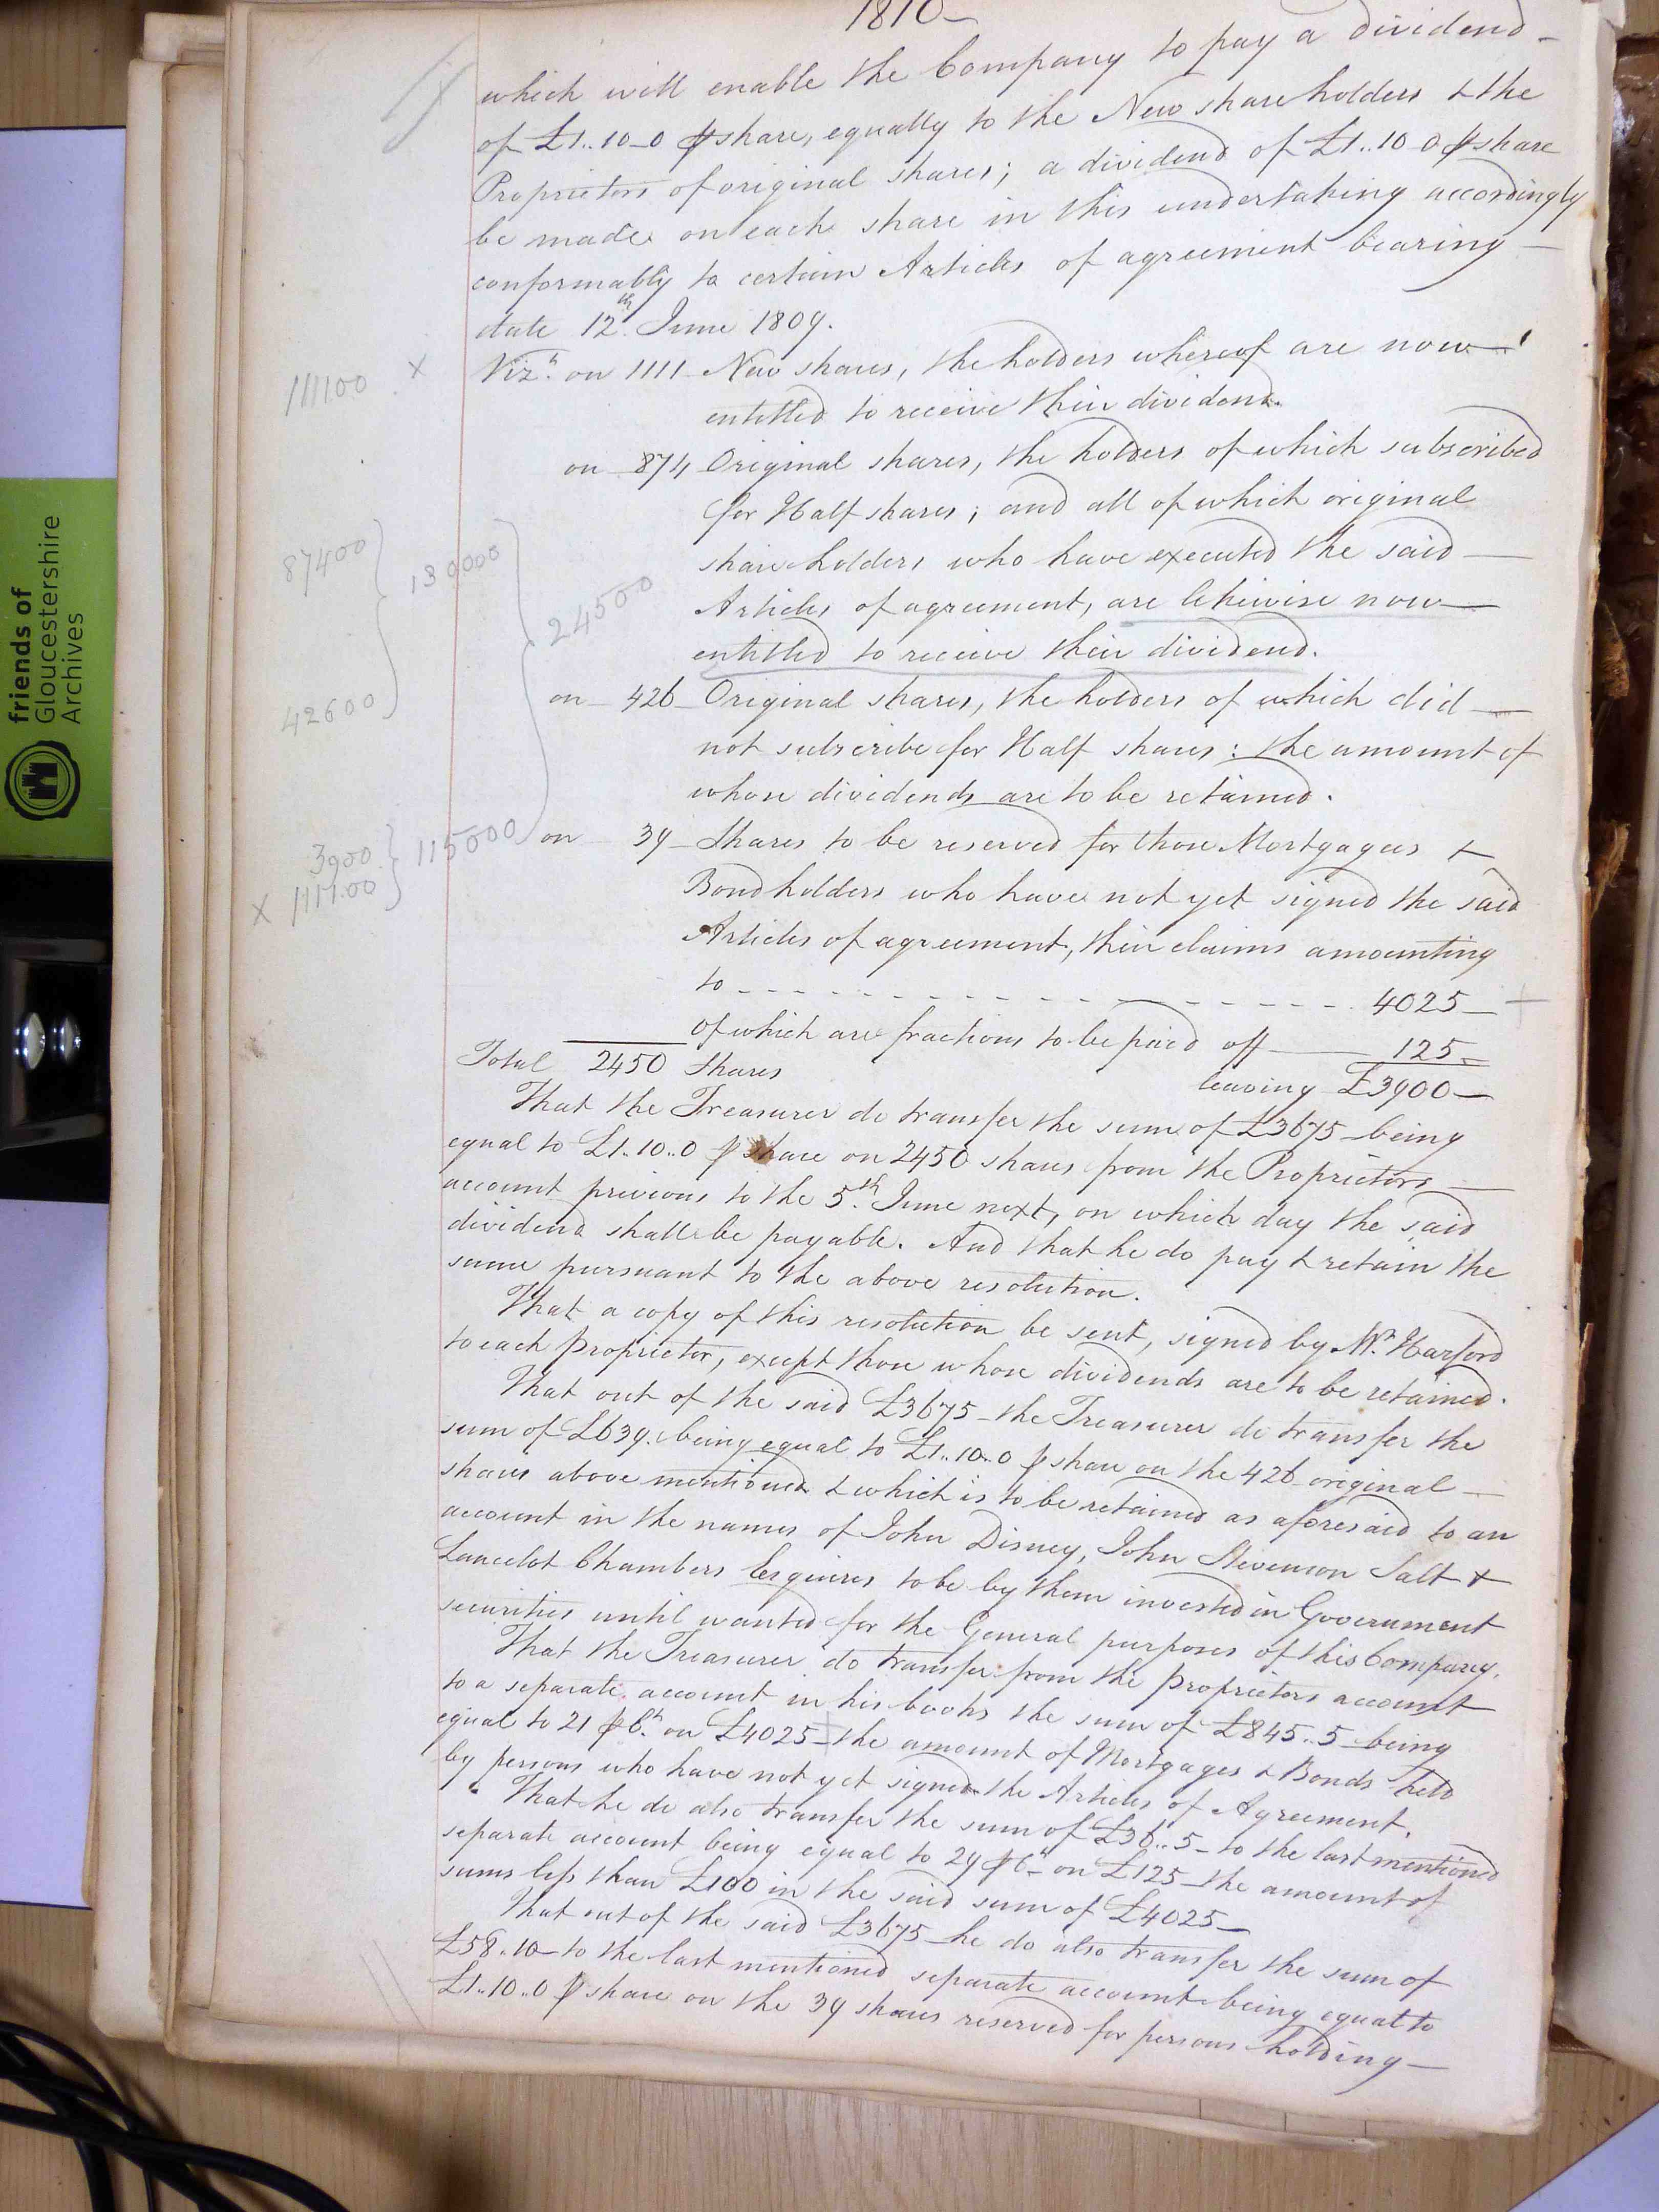 1810
which will enable the Company to pay a dividend
of £1..10-0 ⅌ share, equally to the New share holders & the
Proprietors of original shares; a dividend of £1..10-0 ⅌ share
be made on each share in this undertaking accordingly
conformably to certain Articles of agreement bearing
date 12th June 1809.
111100 x
Vizt. on 1111 New shares, the holders whereof are now
entitled to receive their dividend.
on 874 Original shares, the holders of which subscribed
for Half shares; and all of which original
share holders who have executed the said
87400
130000
24500
Articles of agreement, are likewise now
entitled to receive their dividend.
42600
on 426 Original shares, the holders of which did
not subscribe for Half shares: the amount of
whose dividends are to be retained.
3900
x 1111.00
115000
on 39 Shares to be reserved for those Mortgagees &
Bondholders who have not yet signed the said
Articles of agreement, their claims amounting
to 4025
of which are fractions to be paid off 125
Total 2450 Shares leaving £3900
That the Treasurer do transfer the sum of £3675 being
equal to £1..10..0 ⅌ share on 2450 shares from the Proprietors
account previous to the 5th June next, on which day the said
dividend shall be payable. And that he do pay & retain the
same pursuant to the above resolution.
That a copy of this resolution be sent, signed by Mr. Harford
to each Proprietor, except those whose dividends are to be retained.
That out of the said £3675 the Treasurer do transfer the
sum of £639. being equal to £1..10..0 ⅌ share on the 426 original
shares above mentioned & which is to be retained as aforesaid to an
account in the names of John Disney, John Stevenson Salt &
Lancelot Chambers Esquires to be by them invested in Government
securities until wanted for the General purposes of this Company.
That the Treasurer do transfer from the proprietors account
to a separate account in his books the sum of £845..5 being
equal to 21 ⅌ Ct. on £4025 the amount of Mortgages & Bonds held
by persons who have not yet signed the Articles of Agreement.
That he do also transfer the sum of £36..5 to the last mentioned
separate account being equal to 29 ⅌ Ct on £125 the amount of
sums less than £100 in the said sum of £4025
That out of the said £3675 he do also transfer the sum of
£58..10 to the last mentioned separate account being equal to
£1..10..0 ⅌ share on the 39 shares reserved for persons holding
friends of
Gloucestershire
Archives